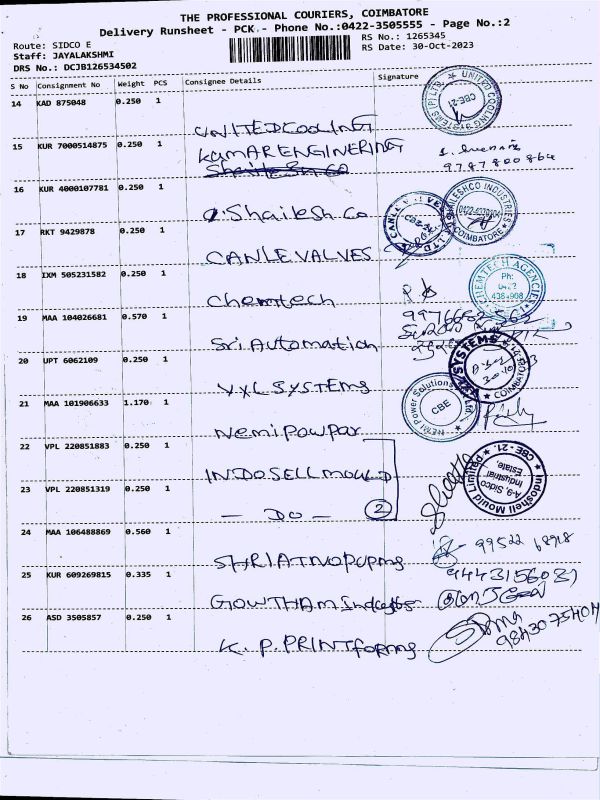 THE PROFESSIONAL COURIERS, COIMBATORE
Delivery Runsheet - PCK - Phone No.:0422-3505555 - Page No.:2
Route: SIDCO E
RS No.: 1265345
Staff: JAYALAKSHMI
RS Date: 30-Oct-2023
DRS No.: DCJB126534502
S No Consignment No Weight PCS Consignee Details Signature
14 KAD 875048 0.250 1
UNITEDCOOLING
15 KUR 7000514875 0.250 1
KUMARENGINERING
9787800864
Shailesh.co
16 KUR 4000107781 0.250 1
Shailesh.Co
SHAILESHCO INDUSTRIES
COIMBATORE
17 RKT 9429878 0.250 1
CANLEVALVES
18 IXM 505231582 0.250 1
Chemtech
CHEMTECH AGENCIE
Ph:
19 MAA 104026681 0.570 1
Sri.Automation
20 UPT 6062109 0.250 1
VXL SYSTEMS
21 MAA 101906633 1.170 1
Nemipowpar
NEMI Power Solutions
CBE
22 VPL 220851883 0.250 1
INDOSELLMOULD
Indoshell Mould Limited
A-9, Sidco
Industrial
Estate,
CBE - 21.
23 VPL 220851319 0.250 1
- DO -
2
24 MAA 106488869 0.560 1
99522 68918
25 KUR 609269815 0.335 1
9443156031
26 ASD 3505857 0.250 1
K. P. PRINTforms